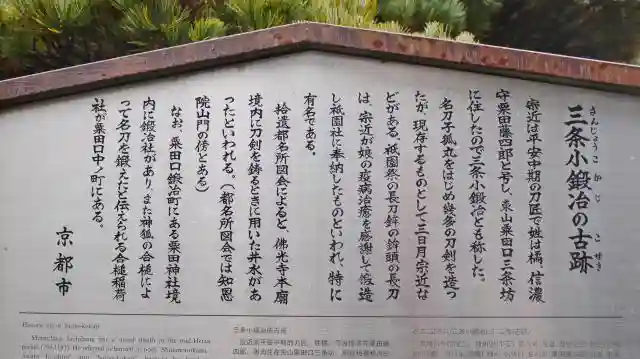 三条小鍛冶の古跡
さんじょうこかじ　こせき
宗近は平安中期の刀匠で姓は橘、信濃
守粟田藤四郎と号し、東山粟田口三条坊
に住したので三条小鍛冶とも称した。
名刀子狐丸をはじめ幾多の刀剣を造っ
たが、現存するものとして三日月宗近な
どがある。祇園祭の長刀鉾の鉾頭の長刀
は、宗近が娘の疫病治癒を感謝して鍛造
し祇園社に奉納したものといわれ、特に
有名である。
拾遺都名所図会によると、佛光寺本廟
境内に刀剣を鋳るときに用いた井水があ
ったといわれる。（都名所図会では知恩
院山門の傍とある）
なお、粟田口鍛冶町にある粟田神社境
内に鍛冶社があり、また神狐の合槌によ
って名刀を鍛えたと伝えられる合槌稲荷
社が粟田口中ノ町にある。
京都市